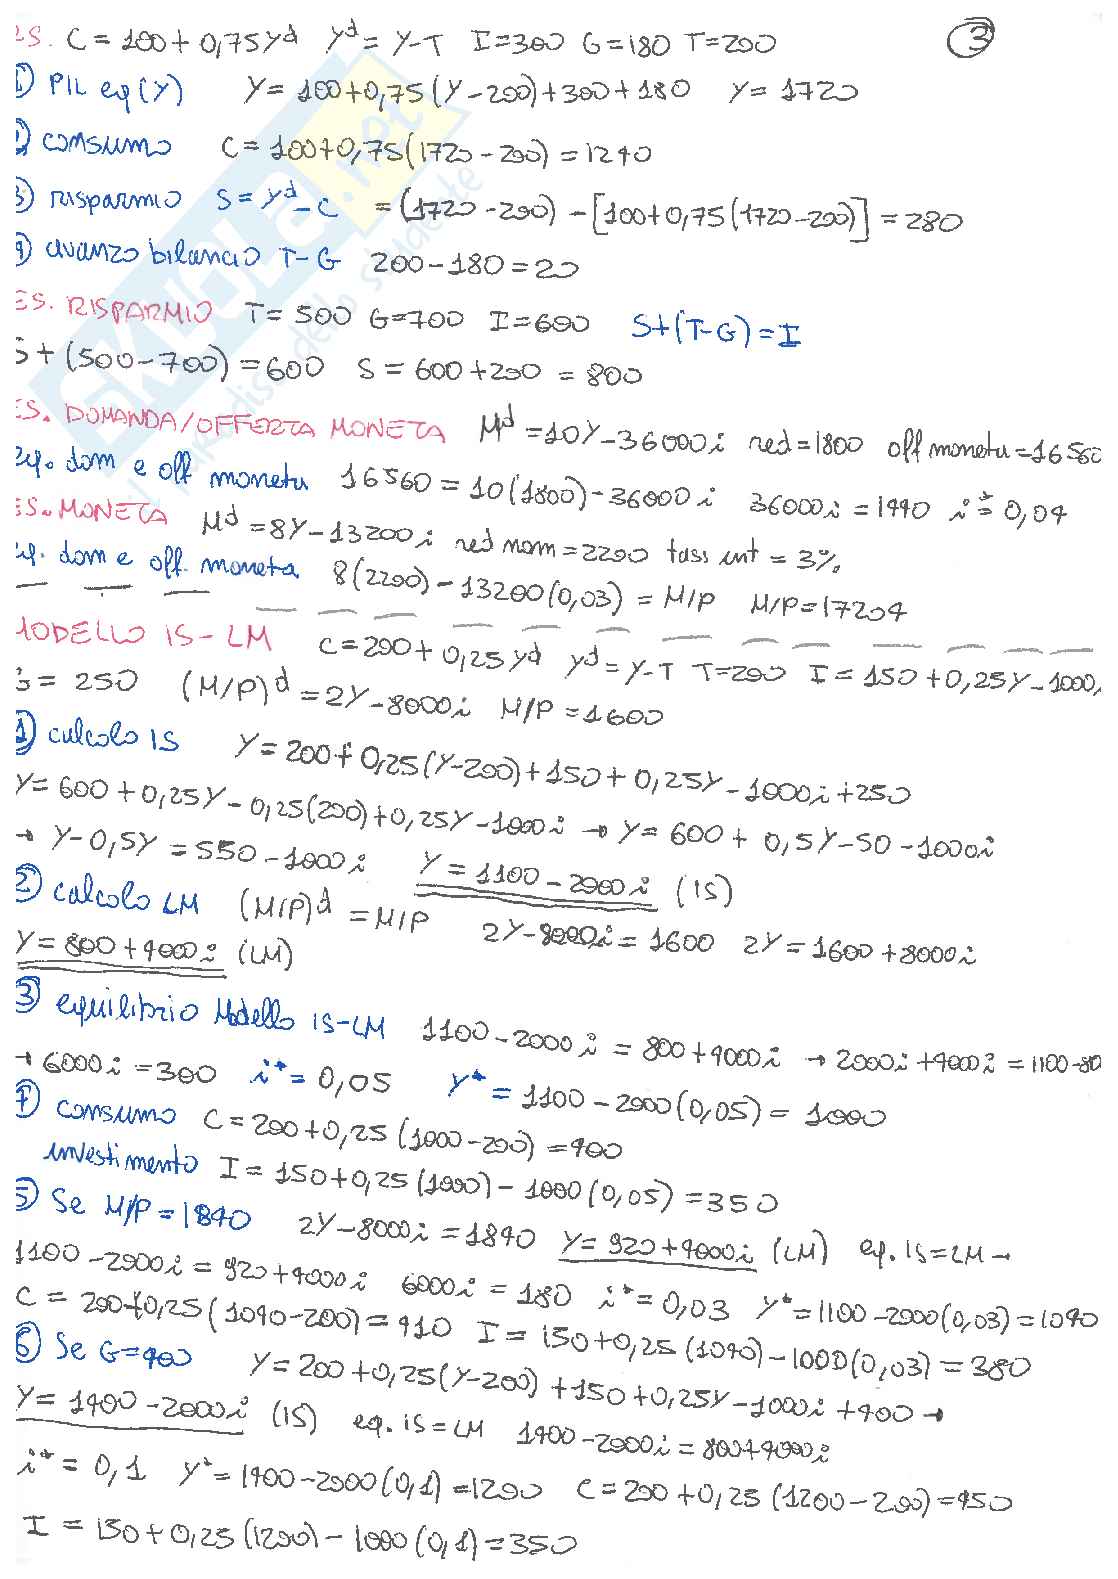 ES. C = 100 + 0,75Yd Yd = Y-T I = 300 G = 180 T = 200 3
1) PIL eq (Y) Y = 100 + 0,75(Y-200) + 300 + 180 Y = 1720
2) consumo C = 100 + 0,75(1720-200) = 1240
3) risparmio S = Yd - C = (1720-200) - [100 + 0,75(1720-200)] = 280
4) avanzo bilancio T-G 200-180 = 20
ES. RISPARMIO T = 500 G = 700 I = 600 S+(T-G) = I
S + (500-700) = 600 S = 600 + 200 = 800
ES. DOMANDA/OFFERTA MONETA Md = 10Y - 36000i red = 1800 off monetu = 16560
eq. dom e off monetu 16560 = 10(1800) - 36000i 36000i = 1440 i* = 0,04
ES. MONETA Md = 8Y - 13200i red nom = 2200 tass int = 3%
eq. dom e off. moneta 8(2200) - 13200(0,03) = M/P M/P = 17204
MODELLO IS-LM C = 200 + 0,25Yd Yd = Y-T T = 200 I = 150 + 0,25Y - 1000i
G = 250 (M/P)d = 2Y - 8000i M/P = 1600
1) calcolo IS Y = 200 + 0,25(Y-200) + 150 + 0,25Y - 1000i + 250
Y = 600 + 0,25Y - 0,25(200) + 0,25Y - 1000i → Y = 600 + 0,5Y - 50 - 1000i
→ Y - 0,5Y = 550 - 1000i Y = 1100 - 2000i (IS)
2) calcolo LM (M/P)d = M/P 2Y - 8000i = 1600 2Y = 1600 + 8000i
Y = 800 + 4000i (LM)
3) equilibrio Modello IS-LM 1100 - 2000i = 800 + 4000i → 2000i + 4000i = 1100-80
→ 6000i = 300 i* = 0,05 Y* = 1100 - 2000(0,05) = 1000
4) consumo C = 200 + 0,25(1000-200) = 400
investimento I = 150 + 0,25(1000) - 1000(0,05) = 350
5) Se M/P = 1840 2Y - 8000i = 1840 Y = 920 + 4000i (LM) eq. IS = LM →
1100 - 2000i = 920 + 4000i 6000i = 180 i* = 0,03 Y* = 1100 - 2000(0,03) = 1040
C = 200 + 0,25(1040-200) = 410 I = 150 + 0,25(1040) - 1000(0,03) = 380
6) Se G = 400 Y = 200 + 0,25(Y-200) + 150 + 0,25Y - 1000i + 400 →
Y = 1400 - 2000i (IS) eq. is = LM 1400 - 2000i = 800 + 4000i
i* = 0,1 Y* = 1400 - 2000(0,1) = 1200 C = 200 + 0,25(1200-200) = 450
I = 150 + 0,25(1200) - 1000(0,1) = 350